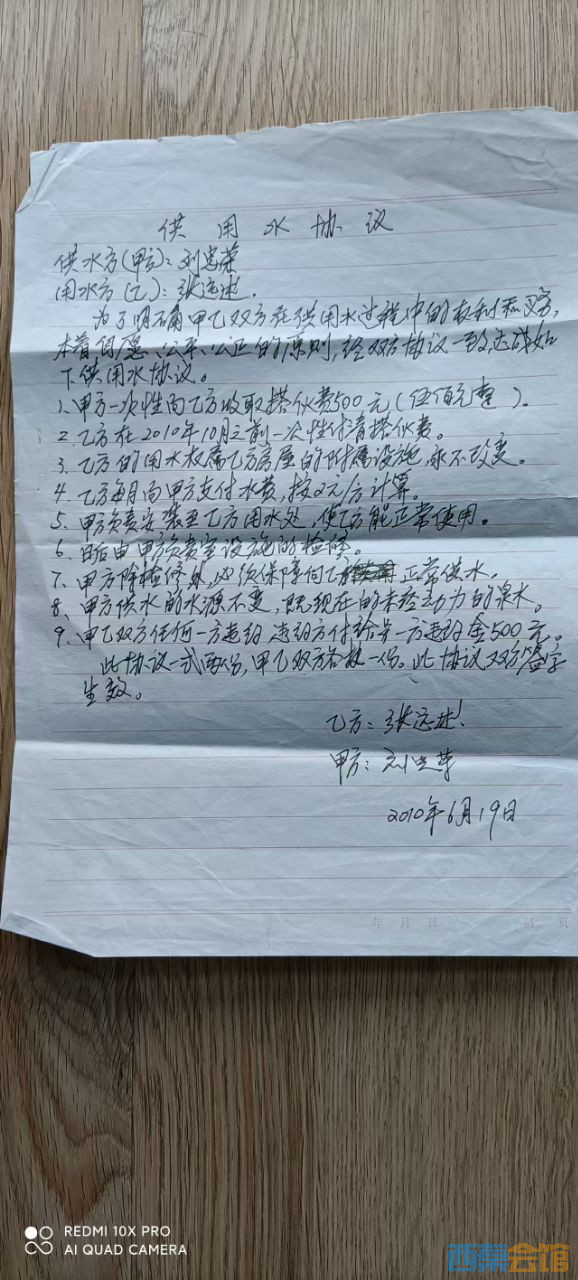 供用水协议
供水方(甲方):刘忠荣
用水方(乙):张远述.
为了明确甲乙双方在供用水过程中的权利和义务,
本着自愿、公平、公正的原则,经双方协议一致,达成如
下供用水协议。
1、甲方一次性向乙方收取搭伙费500元(伍佰元整)。
2、乙方在2010年10月之前一次性付清搭伙费。
3、乙方的用水权属乙方房屋的附属设施,永不改变。
4、乙方每月向甲方支付水费,按2元/方计算。
5、甲方负责安装至乙方用水处,使乙方能正常使用。
6、日后由甲方负责室设施的检修。
7、甲方除检修外,必须保障向乙方正常供水。
8、甲方供水的水源不变,既现在的未经动力的泉水。
9、甲乙双方任何一方违约,违约方付给另一方违约金500元。
此协议一式两份,甲乙双方各执一份。此协议双方签字
生效。
乙方:张远述
甲方:刘忠荣
2010年6月19日
年 月 日 第 页
REDMI 10X PRO
AI QUAD CAMERA
西渠会馆